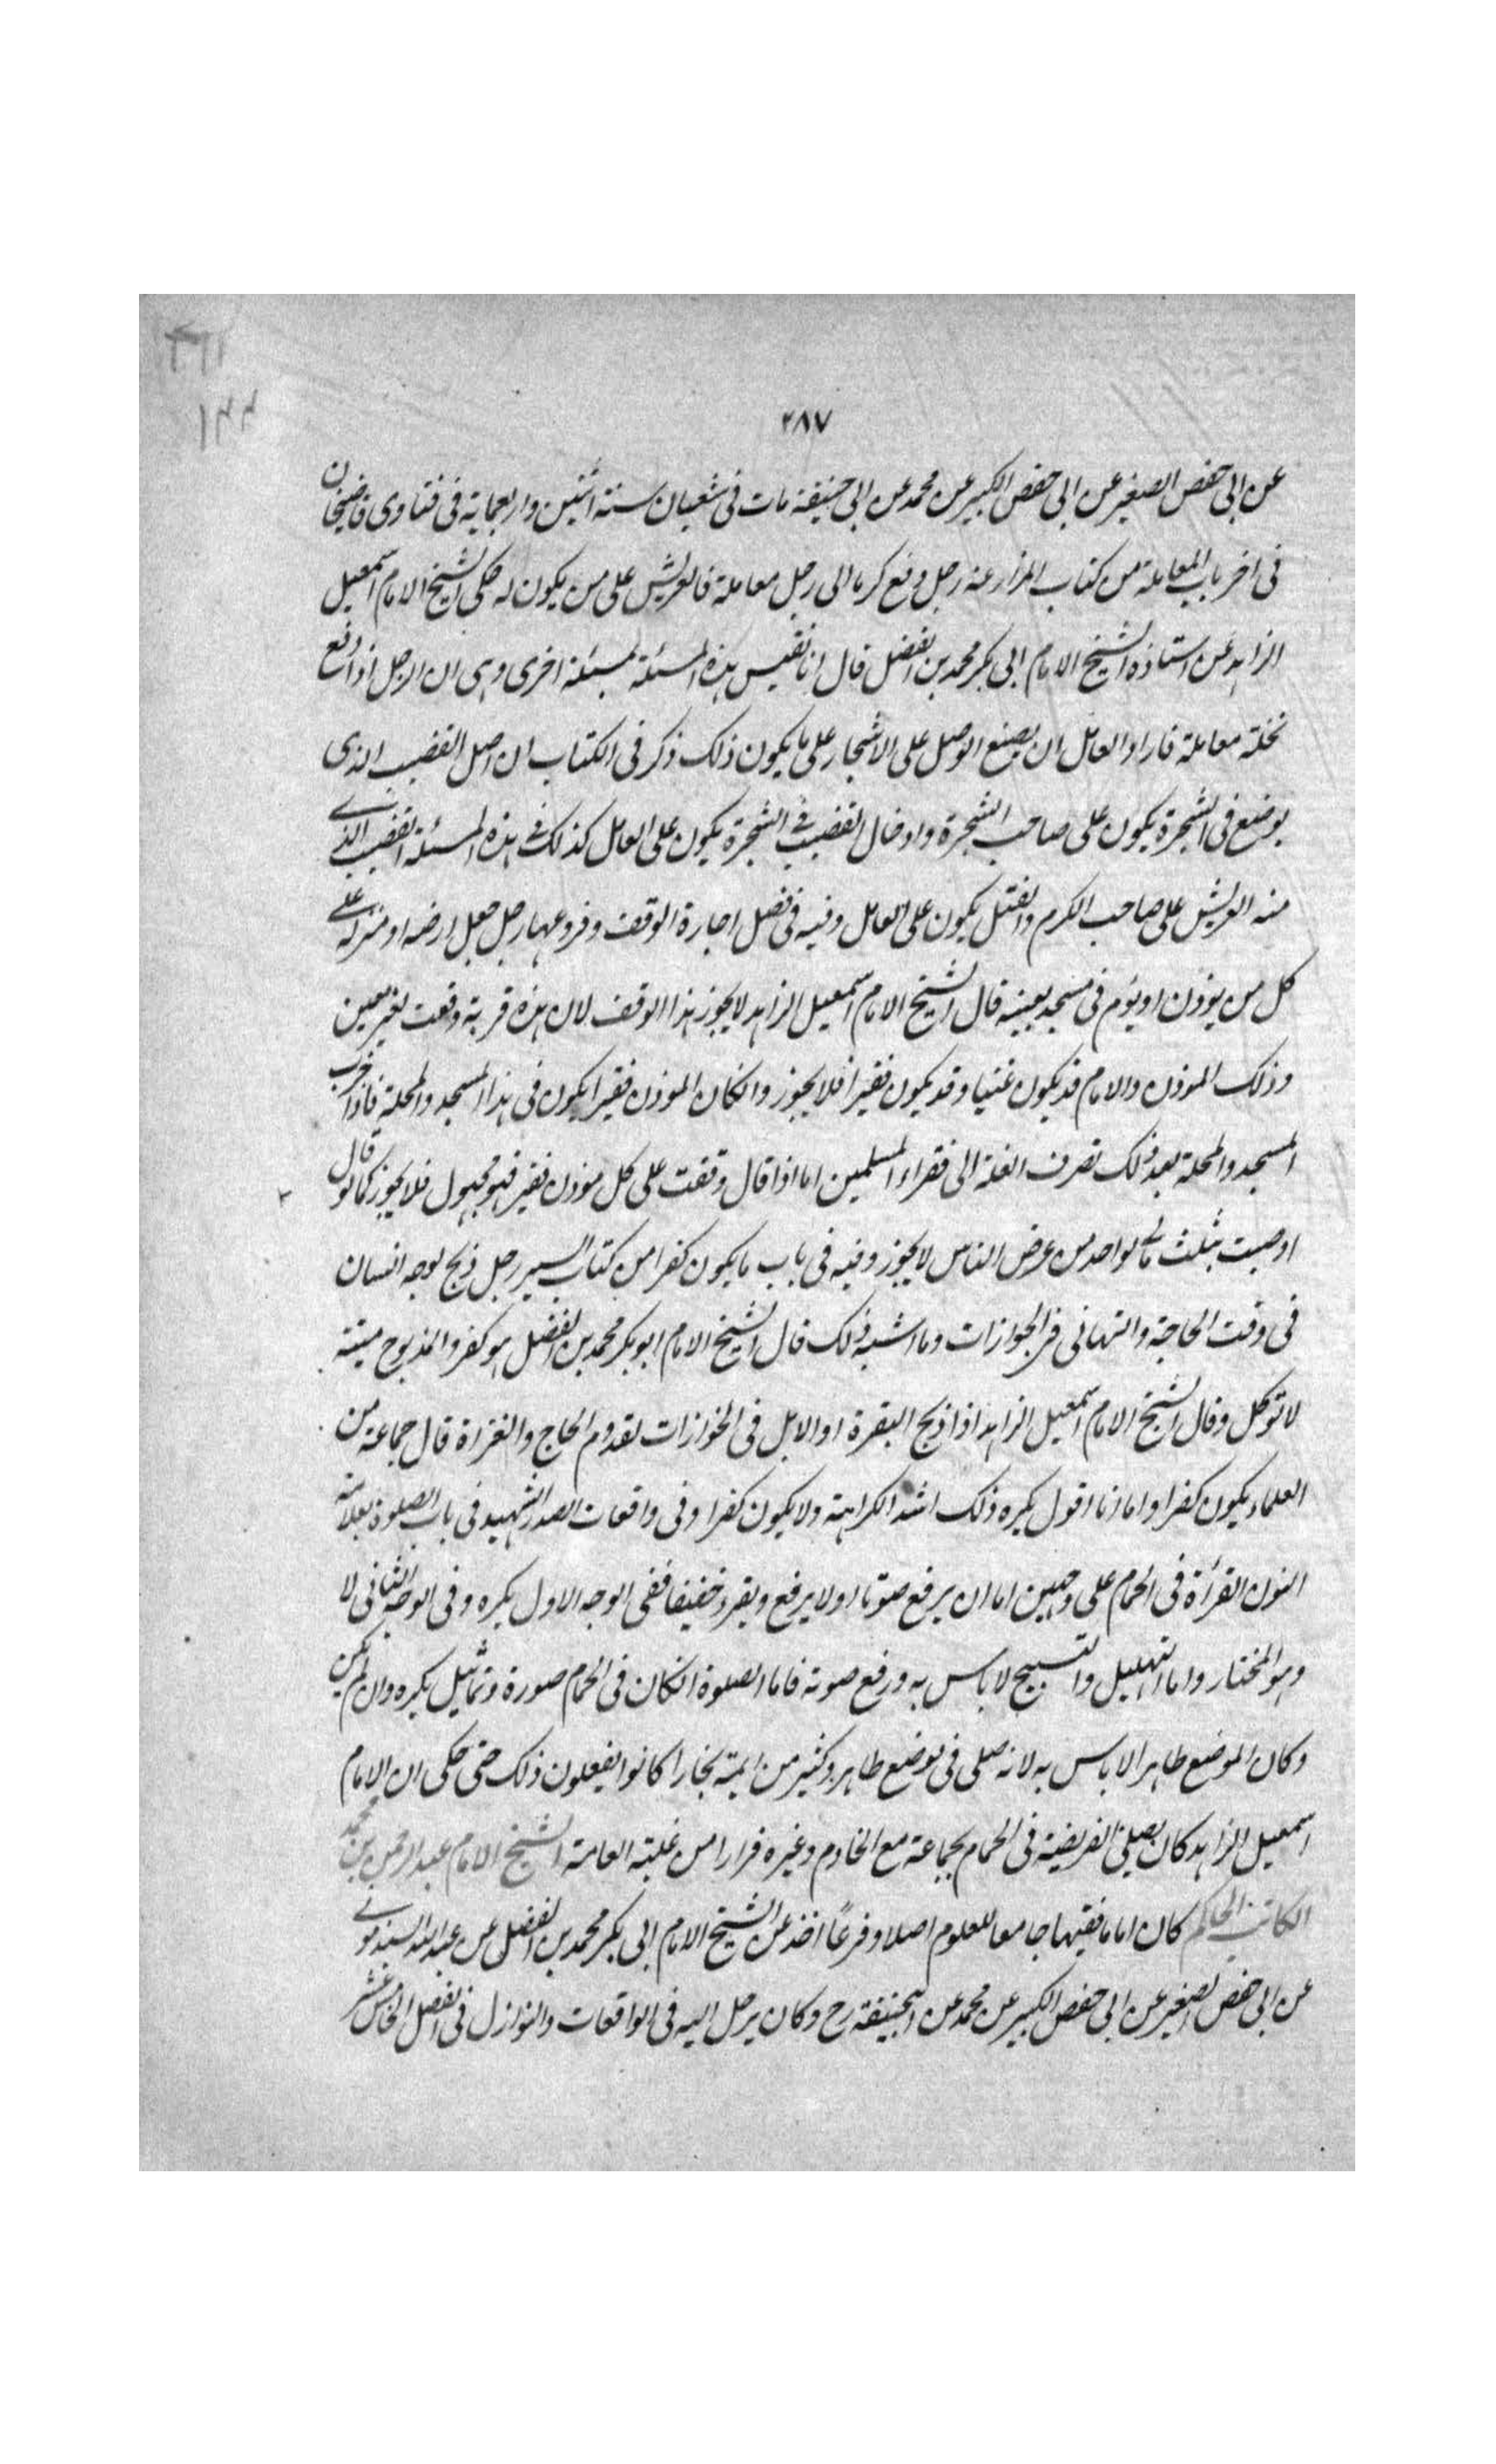 ٢٨٧
عن ابى حفص الصغير عن ابى حفص الكبير عن محمد عن ابى حنيفة مات فى شعبان سنة اثنين واربعماية فى فتاوى قاضيخان
فى اخر باب المعاملة من كتاب المزارعة رجل دفع كرما الى رجل معاملة فالعريش على من يكون له حكى الشيخ الامام اسمعيل
الزاهد عن استاذه الشيخ الامام ابى بكر محمد بن الفضل قال انا نقيس هذه المسئلة بمسئلة اخرى وهى ان الرجل اذا دفع
نخلة معاملة فاراد العامل ان يصنع الوصل على الاشجار على ما يكون ذلك ذكر فى الكتاب ان اصل القضيب الذى
يوضع فى الشجرة يكون على صاحب الشجرة وادخال القضيب فى الشجرة يكون على العامل كذلك فى هذه المسئلة القضيب الذى
منه العريش على صاحب الكرم والفتل يكون على العامل وفيه فى فصل اجارة الوقف وفروعها رجل جعل ارضه او منزله على
كل من يوذن او يؤم فى مسجد بعينه قال الشيخ الامام اسمعيل الزاهد لا يجوز هذا الوقف لان هذه قربة وقعت لغير معين
وذلك الموذن والامام قد يكون غنيا وقد يكون فقيرا فلا يجوز وانكان الموذن فقيرا يكون فى هذا المسجد والمحلة فاذا خرب
المسجد والمحلة بعد ذلك تصرف الغلة الى فقراء المسلمين اما اذا قال وقفت على كل موذن فقير فهو مجهول فلا يجوز كما لو قال
اوصيت بثلث مالى لواحد من عرض الناس لا يجوز وفيه فى باب ما يكون كفرا من كتاب السير رجل ذبح لوجه انسان
فى وقت الحاجة والتهانى فى الجوازات وما اشبه ذلك قال الشيخ الامام ابو بكر محمد بن الفضل هو كفر والمذبوح ميتة
لا توكل وقال الشيخ الامام اسمعيل الزاهد اذا ذبح البقرة او الابل فى الخوازات لقدوم الحاج والغزاة قال جماعة من
العلماء يكون كفرا واما انا اقول يكره ذلك اشد الكراهة ولا يكون كفرا وفى واقعات الصدر الشهيد فى باب الصلوة بعلامة
النون القرأة فى الحمام على وجهين اما ان يرفع صوتا او لا يرفع ويقرء خفيفا ففى الوجه الاول يكره وفى الوجه الثانى لا
وهو المختار واما التهليل والتسبيح لا باس به ورفع صوته فاما الصلوة انكان فى الحمام صورة وتماثيل يكره وان لم يكن
وكان الموضع طاهرا لا باس به لانه صلى فى موضع طاهر وكثير من ايمة بخارا كانوا يفعلون ذلك حتى حكى ان الامام
اسمعيل الزاهد كان يصلى الفريضة فى الحمام بجماعة مع الخادم وغيره فرارا من غلبة العامة الشيخ الامام عبد الرحمن بن محمد
الكاتب الحاكم كان اماما فقيها جامعا للعلوم اصلا وفرعاً اخذ عن الشيخ الامام ابى بكر محمد بن الفضل عن عبد الله السبذمونى
عن ابى حفص الصغير عن ابى حفص الكبير عن محمد عن ابيحنيفة رح وكان يرحل اليه فى الواقعات والنوازل فى الفصل الخامس عشر